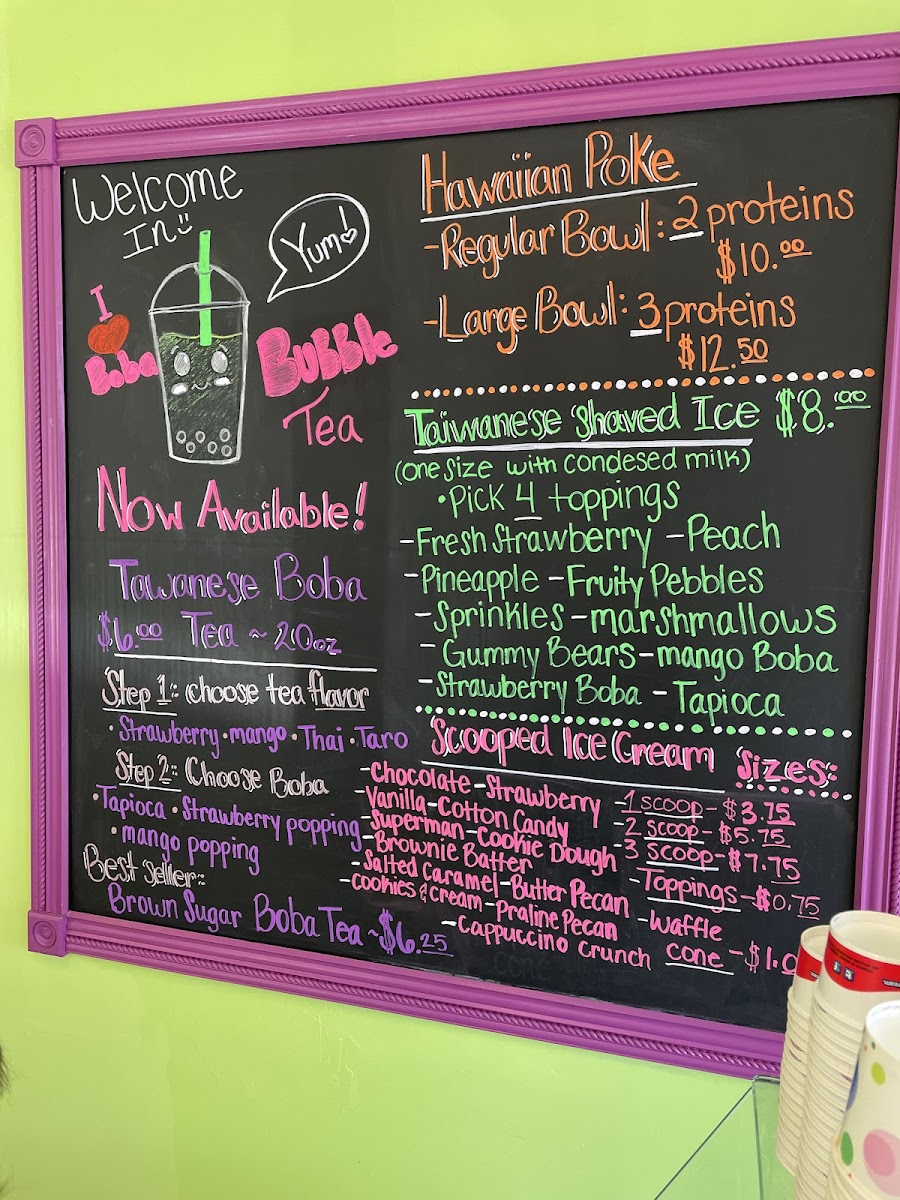 Welcome
In
Yum!
I
Boba
Bubble
Tea
Now Available!
Tawanese Boba
$6.00 Tea ~ 20oz
Step 1: choose tea flavor
• Strawberry • mango • Thai • Taro
Step 2: Choose Boba
• Tapioca • Strawberry popping
• mango popping
Best seller:
Brown Sugar Boba Tea ~ $6.25
Hawaiian Poke
- Regular Bowl: 2 proteins
$10.00
- Large Bowl: 3 proteins
$12.50
Taiwanese Shaved Ice $8.00
(one size with condesed milk)
• Pick 4 toppings
- Fresh Strawberry - Peach
- Pineapple - Fruity Pebbles
- Sprinkles - marshmallows
- Gummy Bears - mango Boba
- Strawberry Boba - Tapioca
Scooped Ice Cream
- Chocolate - Strawberry
- Vanilla - Cotton Candy
- Superman - Cookie Dough
- Brownie Batter
- Salted Caramel - Butter Pecan
- cookies & cream - Praline Pecan
- Cappuccino Crunch
Sizes:
- 1 scoop - $3.75
- 2 scoop - $5.75
- 3 scoop - $7.75
- Toppings - $0.75
- Waffle
cone - $1.0
cone